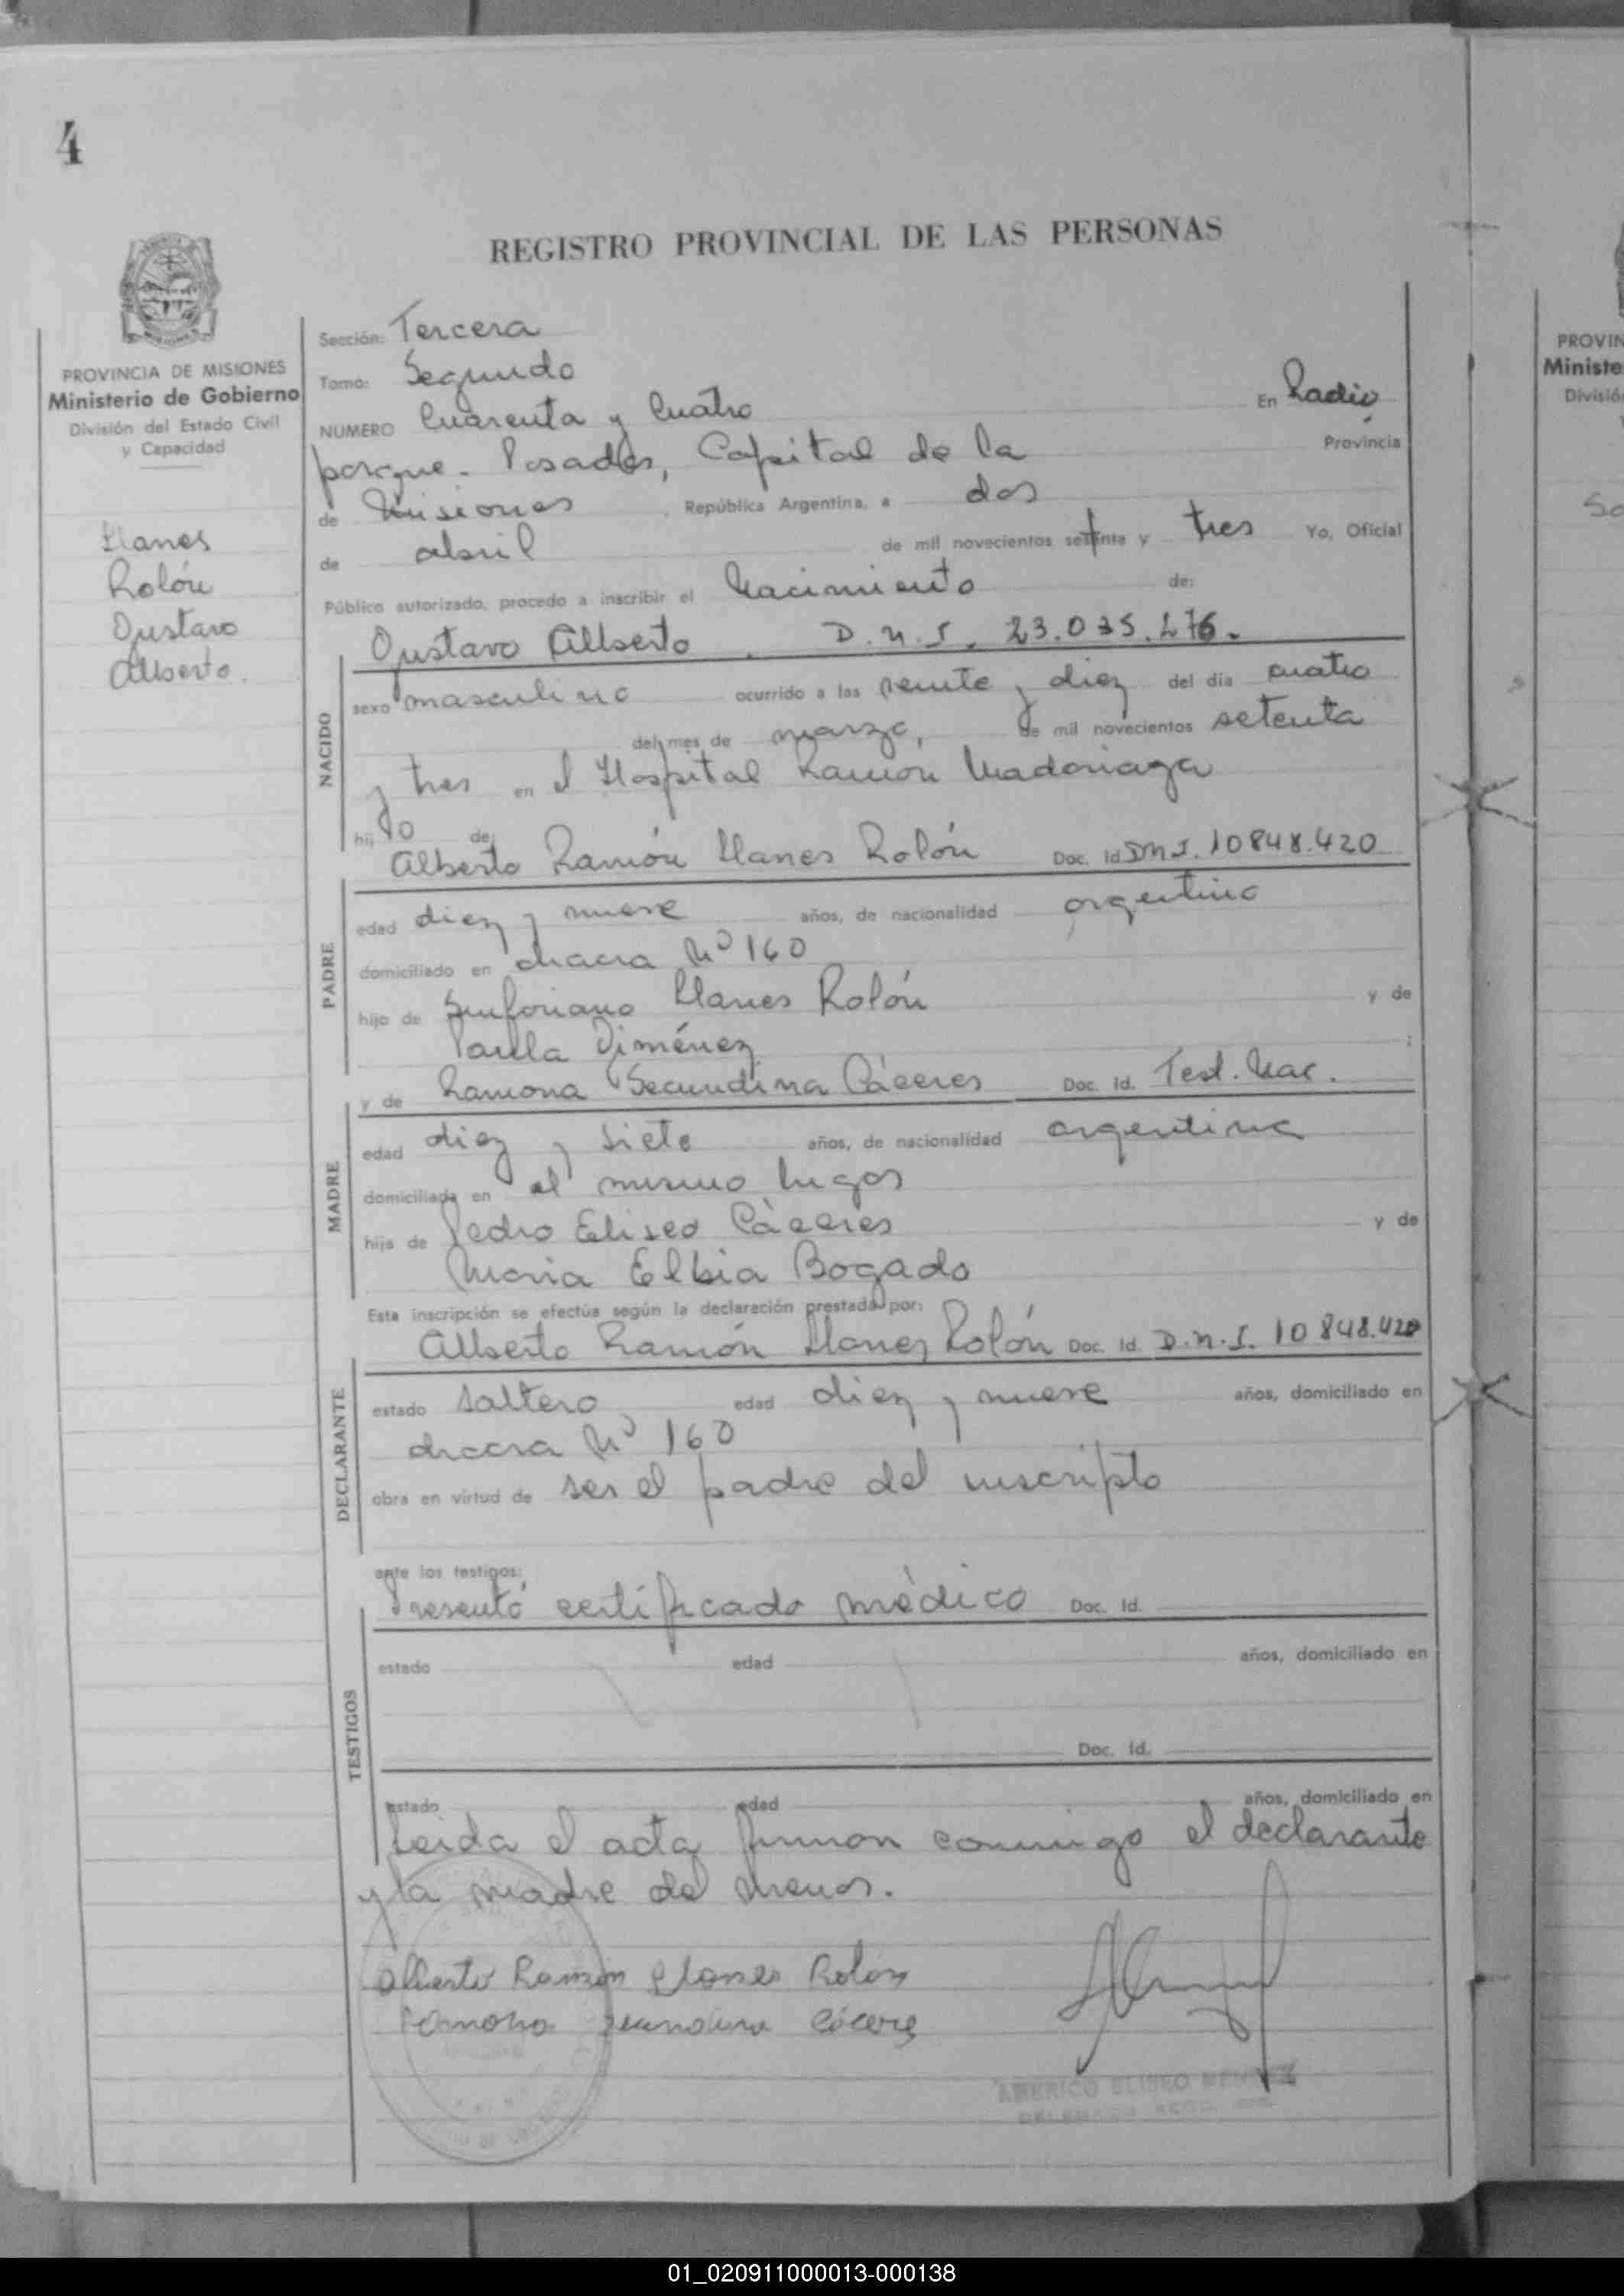 4
REGISTRO PROVINCIAL DE LAS PERSONAS
PROVINCIA DE MISIONES
Ministerio de Gobierno
División del Estado Civil
y Capacidad
Llanes
Rolón
Gustavo
Alberto.
Sección: Tercera
Tomo: Segundo
NUMERO Cuarenta y Cuatro En Radio
parque. Posadas, Capital de la Provincia
de Misiones, República Argentina, a dos
de abril de mil novecientos setenta y tres Yo, Oficial
Público autorizado, procedo a inscribir el Nacimiento de:
Gustavo Alberto. D.N.I. 23.035.276.
NACIDO
sexo masculino ocurrido a las veinte y diez del día cuatro
del mes de marzo, de mil novecientos setenta
y tres en el Hospital Ramón Madariaga
hijo de
Alberto Ramón Llanes Rolón Doc. Id D.N.I. 10848.420
PADRE
edad diez y nueve años, de nacionalidad argentino
domiciliado en chacra Nº 160
hijo de Sinforiano Llanes Rolón y de
Paula Giménez ;
y de Ramona Secundina Cáceres Doc. Id. Test. Nac.
MADRE
edad diez y siete años, de nacionalidad argentina
domiciliada en el mismo lugar
hija de Pedro Eliseo Cáceres y de
Maria Elbia Bogado
Esta inscripción se efectúa según la declaración prestada por:
Alberto Ramón Llanes Rolón Doc. Id. D.N.I. 10848.420
DECLARANTE
estado soltero edad diez y nueve años, domiciliado en
chacra Nº 160
obra en virtud de ser el padre del inscripto
ante los testigos:
Presentó certificado médico Doc. Id.
TESTIGOS
estado edad años, domiciliado en
Doc. Id.
estado edad años, domiciliado en
Leida el acta firman conmigo el declarante
y la madre del menor.
Alberto Ramón Llanes Rolón
Ramona Secundina Cáceres
AMERICO ELISEO
PROVIN
Ministe
Divisió
01_020911000013-000138